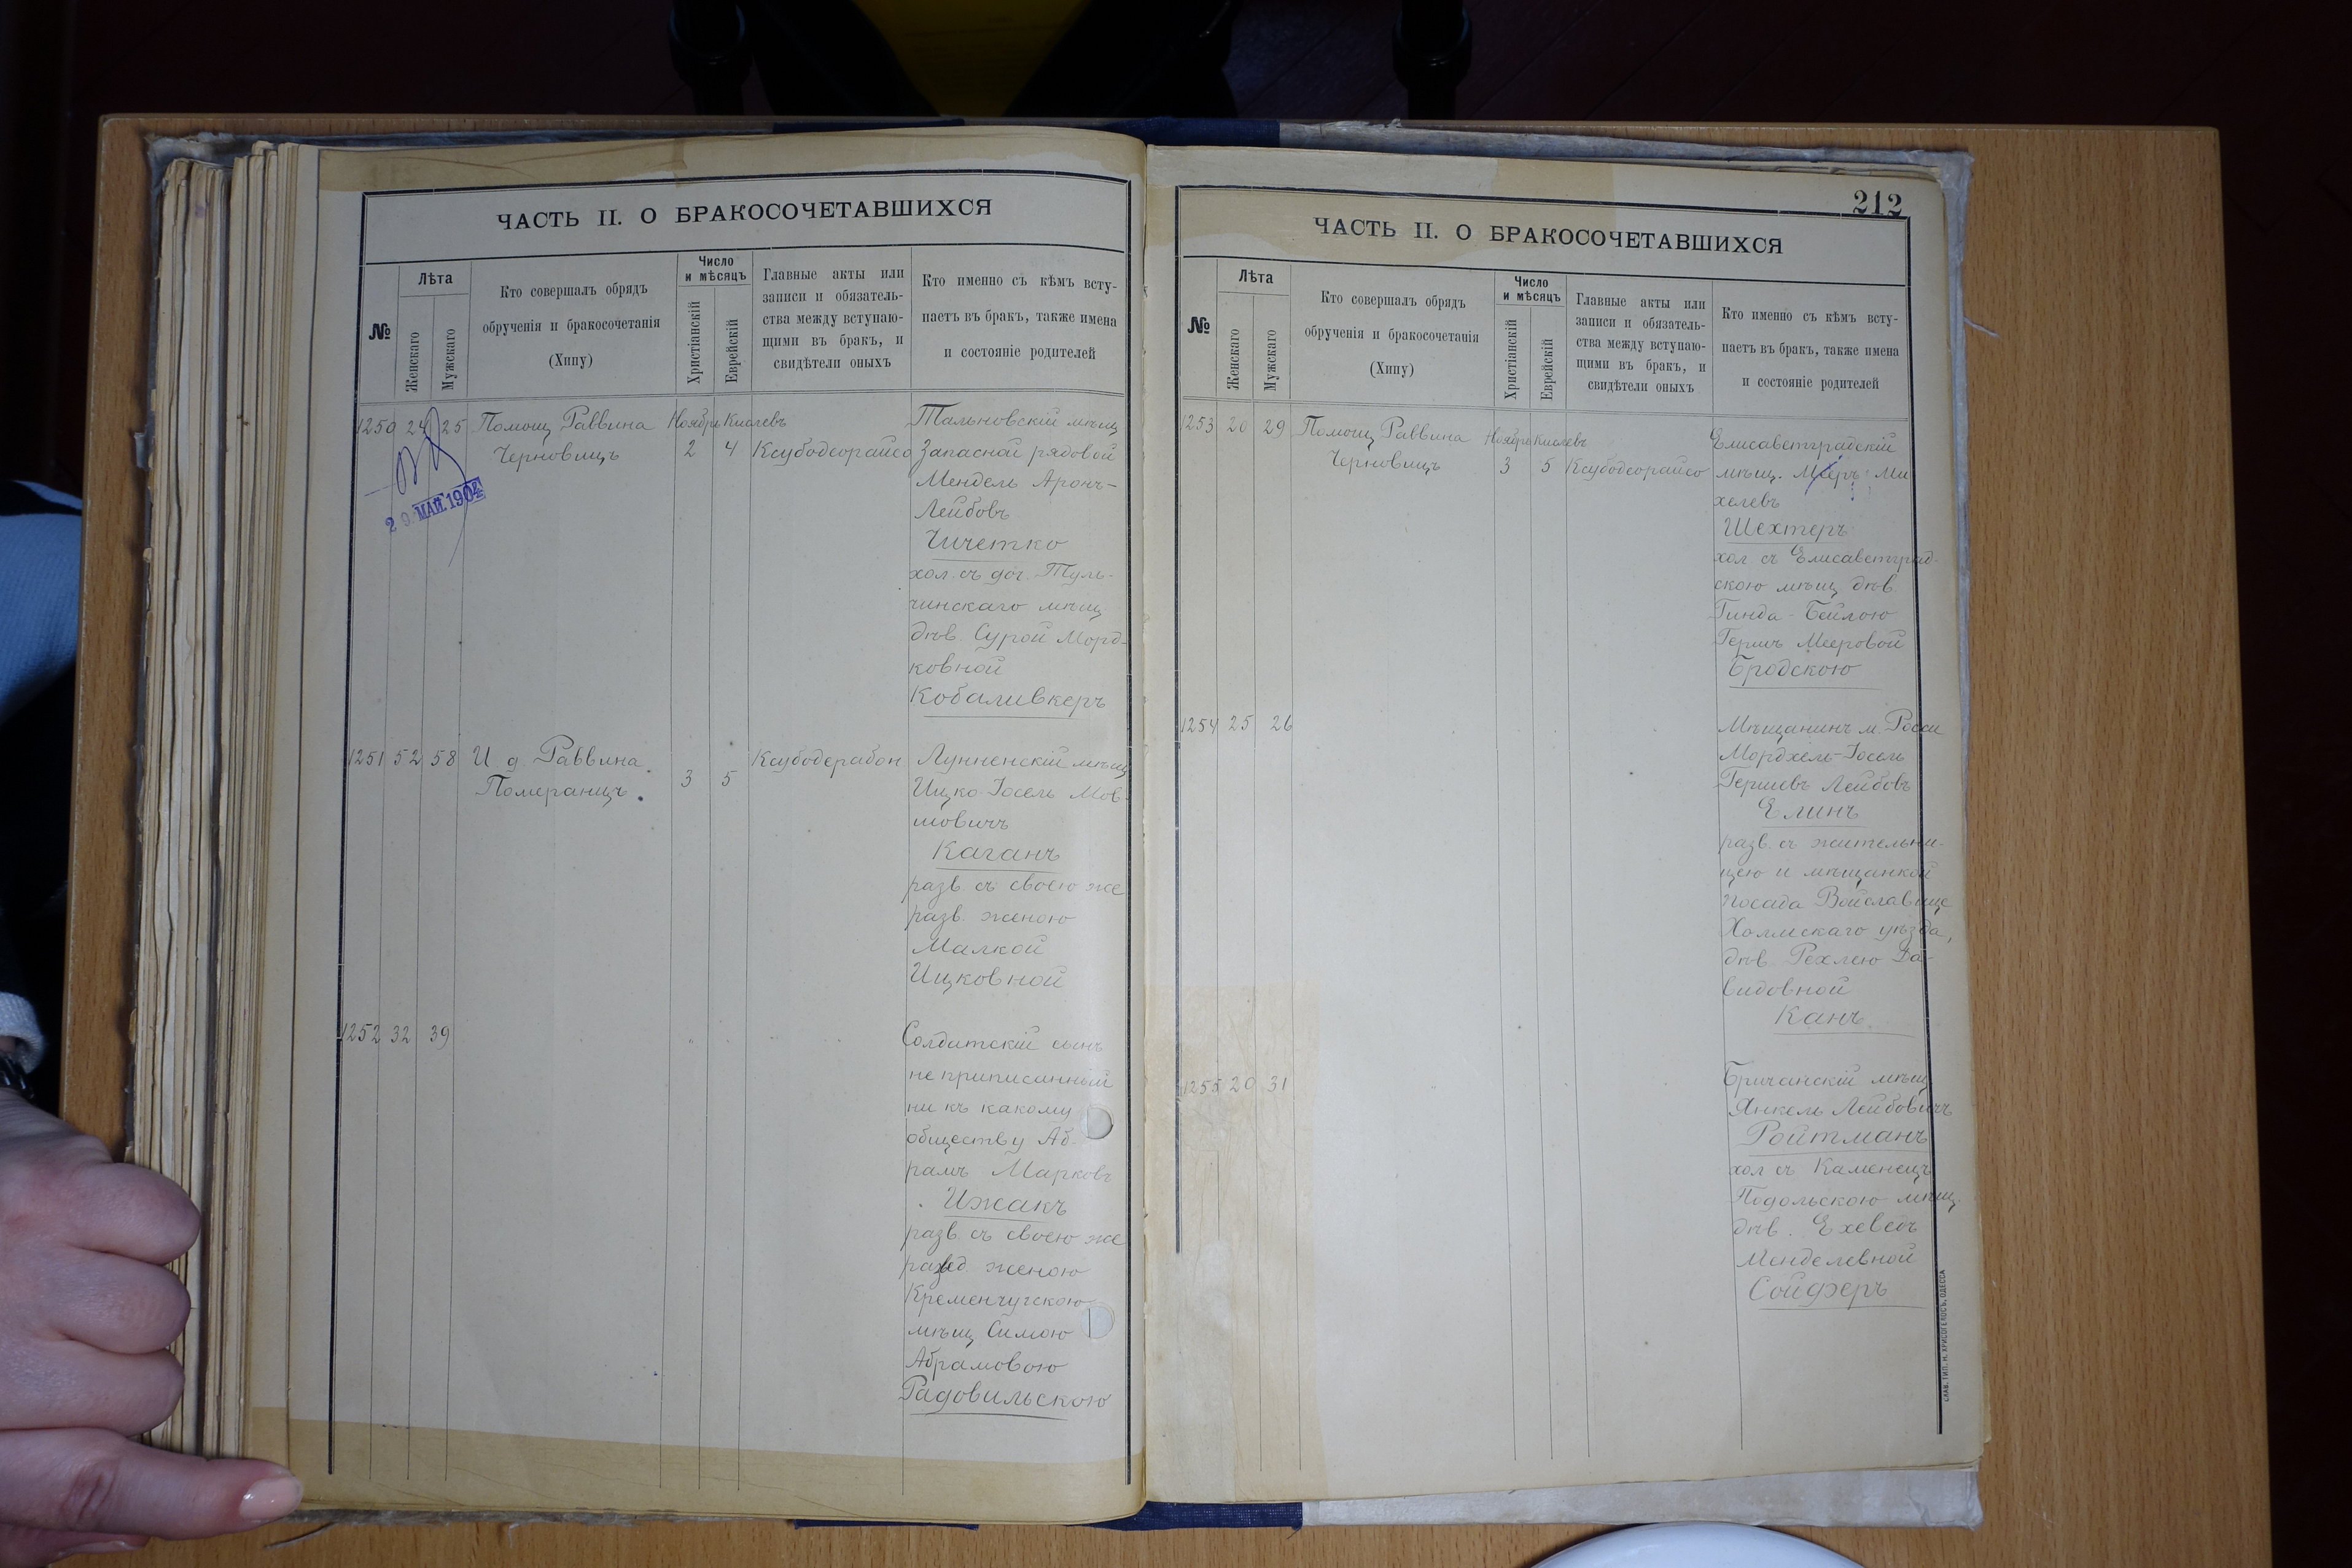 ЧАСТЬ II. О БРАКОСОЧЕТАВШИХСЯ
№
Лѣта
Женскаго
Мужскаго
Кто совершалъ обрядъ
обрученія и бракосочетанія
(Хипу)
Число
и мѣсяцъ
Христіанскій
Еврейскій
Главные акты или
записи и обязатель-
ства между вступаю-
щими въ бракъ, и
свидѣтели оныхъ
Кто именно съ кѣмъ всту-
паетъ въ бракъ, также имена
и состояніе родителей
1250 24 25 Помощ Раввина Ноябрь Кислевъ Тальновскій мѣщ
Черновицъ 2 4 Ксубодеорайсо Запасной рядовой
Мендель Аронъ-
Лейбовъ
Чичетко
хол. съ доч. Туль-
чинскаго мѣщ
дѣв. Сурой Морд-
ковной
Кобаливкеръ
29 МАЙ 1904
1251 52 58 И д. Раввина Ксубодерабон Лунненскій мѣщ
Померанцъ. 3 5 Ицко-Іосель Мов-
шовичъ
Каганъ
разв. съ своею же
разв. женою
Малкой
Ицковной
1252 32 39 Солдатскій сынъ
не приписанный
ни къ какому
обществу Аб-
рамъ Марковъ
Ижакъ
разв. съ своею же
развед. женою
Кременчугскою
мѣщ Симою
Абрамовою
Радовильскою
212
ЧАСТЬ II. О БРАКОСОЧЕТАВШИХСЯ
№
Лѣта
Женскаго
Мужскаго
Кто совершалъ обрядъ
обрученія и бракосочетанія
(Хипу)
Число
и мѣсяцъ
Христіанскій
Еврейскій
Главные акты или
записи и обязатель-
ства между вступаю-
щими въ бракъ, и
свидѣтели оныхъ
Кто именно съ кѣмъ всту-
паетъ въ бракъ, также имена
и состояніе родителей
1253 20 29 Помощ Раввина Ноябрь Кислевъ Елисаветградскій
Черновицъ 3 5 Ксубодеорайсо мѣщ. Мееръ Ми
хелевъ
Шехтеръ
хол съ Елисаветград-
скою мѣщ дѣв
Гинда-Бейлою
Гершъ Мееровой
Бродскою
1254 25 26 Мѣщанинъ м. Росси
Мордхель-Іосель
Гершевъ Лейбовъ
Елинъ
разв. съ жительни-
цею и мѣщанкой
посада Войславице
Холмскаго уѣзда,
дѣв. Рехлею Да-
видовной
Канъ
1255 20 31 Бричанскій мѣщ
Янкель Лейбовичъ
Ройтманъ
хол съ Каменецъ
Подольскою мѣщ.
дѣв. Ехеведъ
Менделевной
Сойферъ
СЛАВ. ТИП. Н. ХРИСОГЕЛОСЪ, ОДЕССА